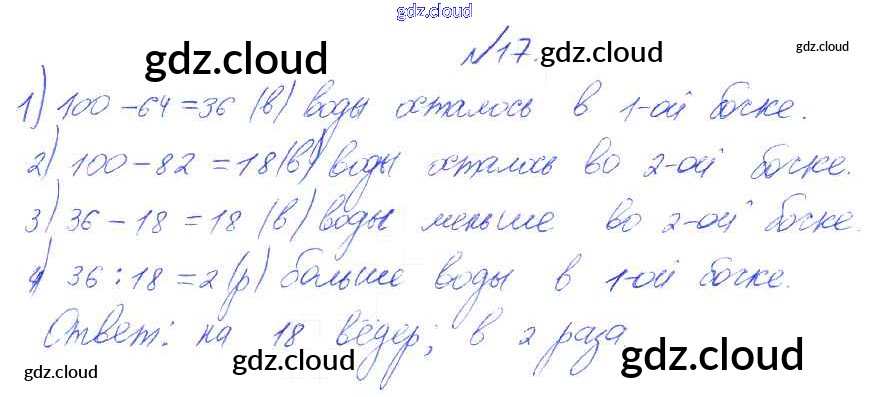 gdz.cloud
№17. gdz.cloud gdz.cloud
gdz.cloud
1) 100 - 64 = 36 (в) воды осталось в 1-ой бочке.
2) 100 - 82 = 18 (в) воды осталось во 2-ой бочке.
3) 36 - 18 = 18 (в) воды меньше во 2-ой бочке.
4) 36 : 18 = 2 (р) больше воды в 1-ой бочке.
Ответ: на 18 вёдер; в 2 раза
gdz.cloud gdz.cloud gdz.cloud